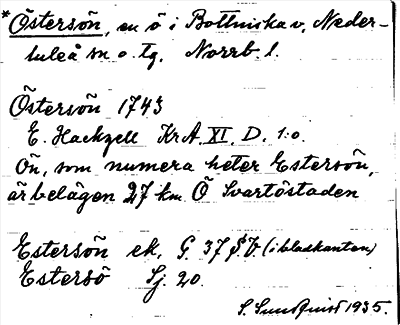 *Östersön, en ö i Bottniska v, Neder-
luleå sn o. tg. Norrb. l.
Östersön 1743
E. Hackzell KrA. XI. D. 1:o.
Ön, som numera heter Estersön,
är belägen 27 km Ö Svartöstaden
Estersön ek. G. 37 § V (i bladkanten)
Estersö Sj. 20.
S. Sundqvist 1935.